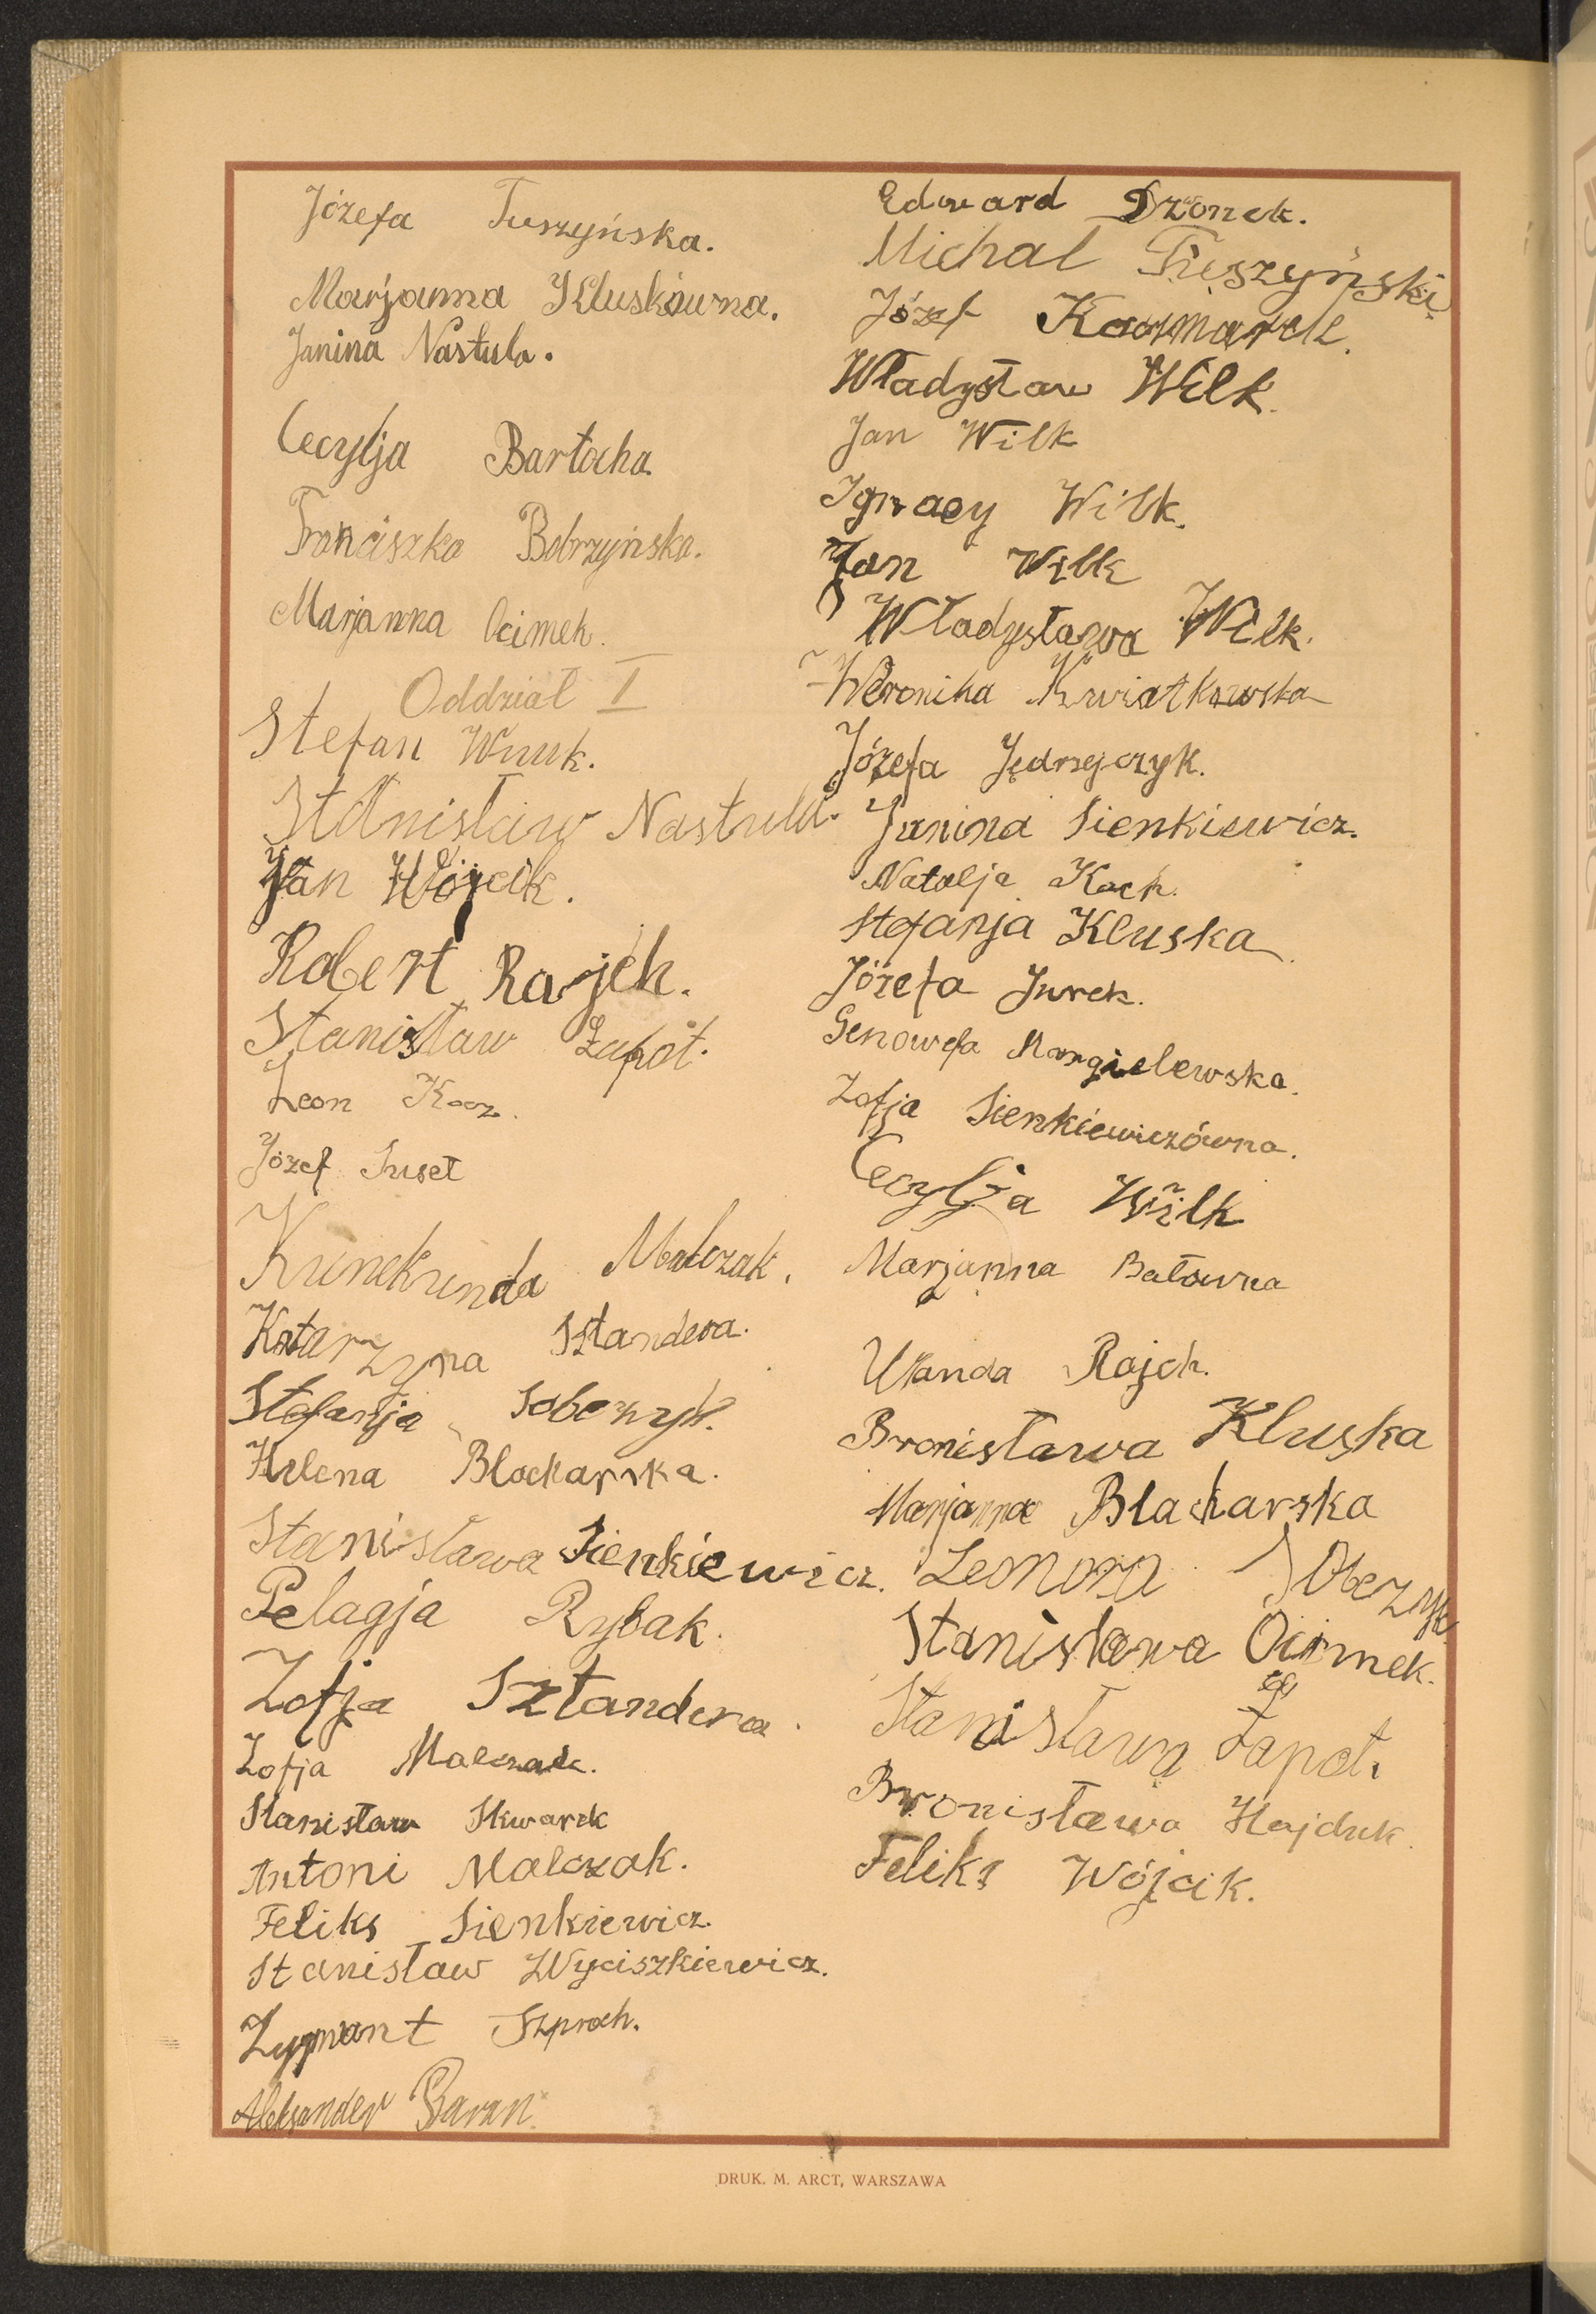 Józefa Tuszyńska.
Marjanna Kluskówna.
Janina Nastula.
Cecylja Bartocha
Franciszka Bobrzyńska.
Marjanna Ocimek.
Oddział II
Stefan Wnuk.
Stanisław Nastula.
Jan Wójcik.
Robert Rajch.
Stanisław Łapot.
Leon Kocz.
Józef
Kunekunda Malczak.
Katarzyna Sztandera.
Stefanja Sobczyk.
Helena Blacharska.
Stanisława Sienkiewicz.
Pelagja Rybak.
Zofja Sztandera.
Zofja Malczak.
Stanisław Skwarek
Antoni Malczak.
Feliks Sienkiewicz.
Stanisław Wyciszkiewicz.
Zygmunt Szproch.
Aleksander Baran.
Edward Dzonek.
Michał Tuszyński
Józef Kaczmarek.
Władysław Wilk.
Jan Wilk
Ignacy Wilk.
Jan Wilk
Władysława Wilk.
Weronika Kwiatkowska
Józefa Jędrzejczyk.
Janina Sienkiewicz.
Natalja Kach.
Stefanja Kluska.
Józefa Jurek.
Genowefa Margielewska.
Zofja Sienkiewiczówna.
Cecylja Wilk
Marjanna Batówna
Wanda Rajch.
Bronisława Kluska
Marjanna Blacharska
Leonora Sobczyk.
Stanisława Ocimek.
Stanisława Łapot.
Bronisława Hajduk.
Feliks Wójcik.
DRUK. M. ARCT, WARSZAWA